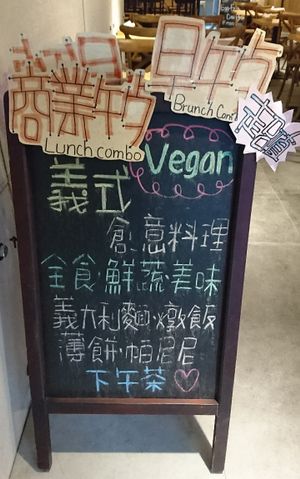 商業午
Lunch combo
早午
Brunch Com
Vegan
義式
創意料理
全食·鮮蔬·美味
義大利麵·燉飯
薄餅·帕尼尼
下午茶♡